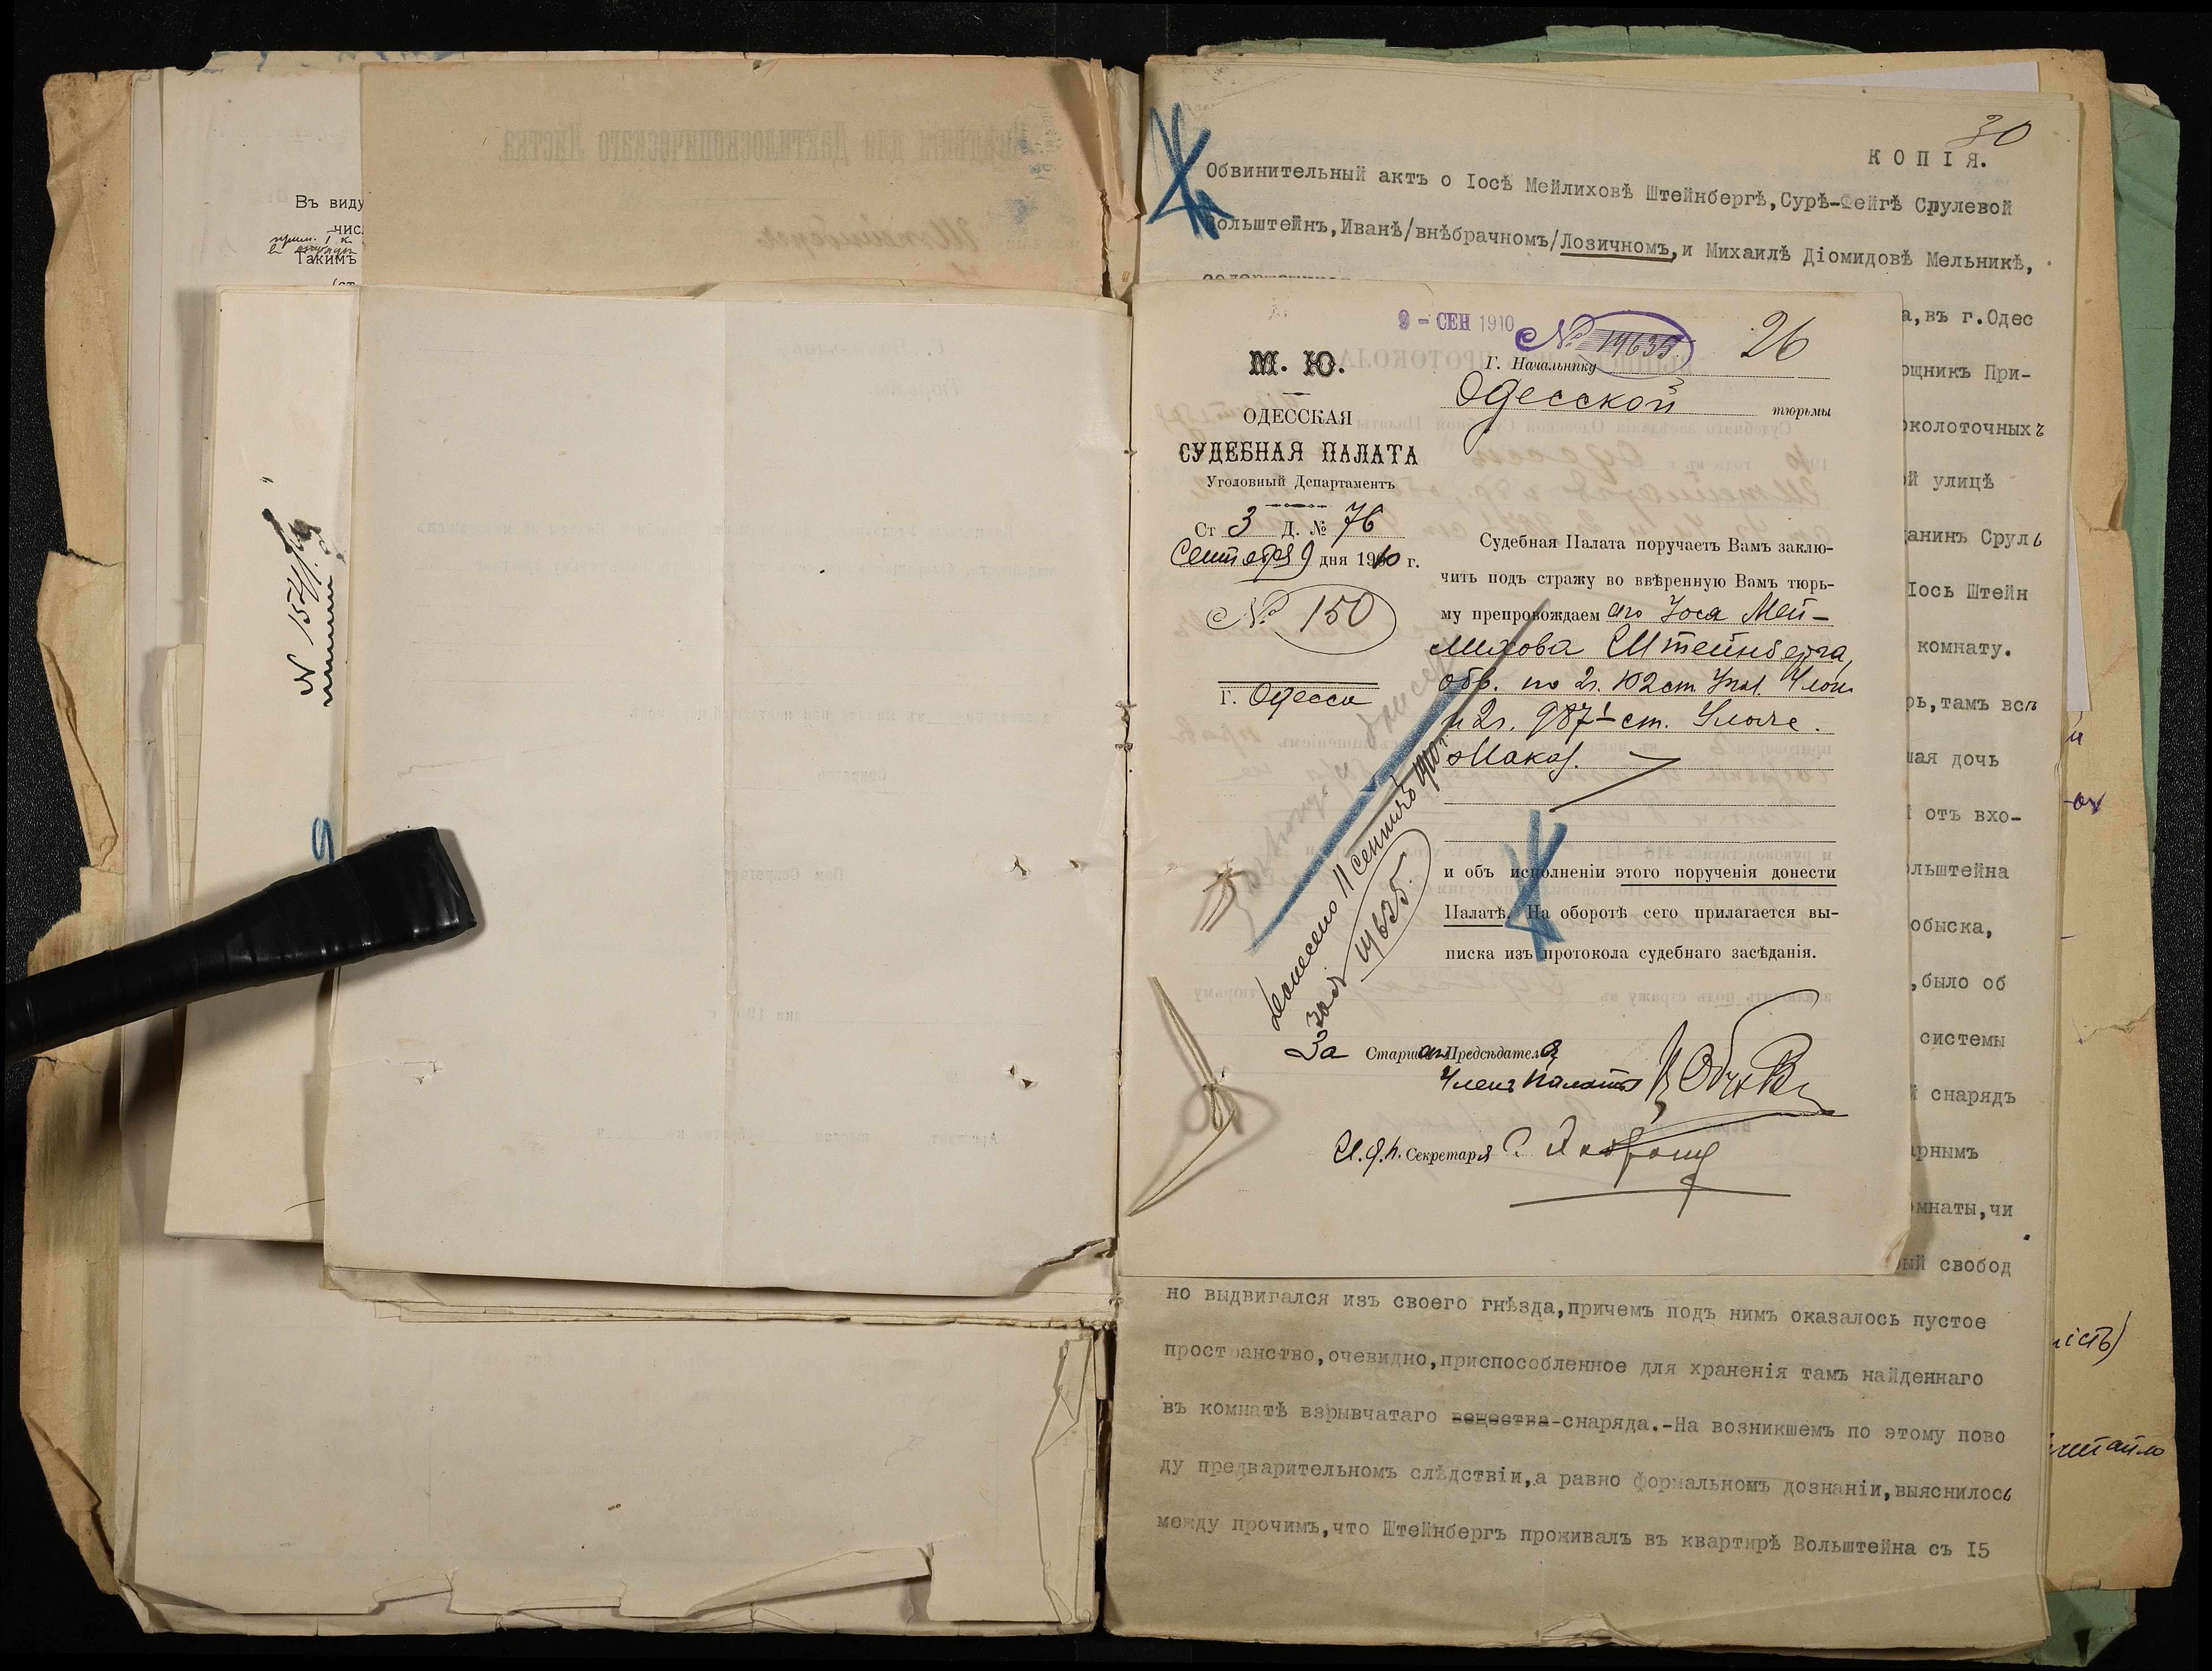 Въ виду
чис
Такимъ
30
КОПІЯ.
Обвинительный актъ о Іосѣ Мейлиховѣ Штейнбергѣ,Сурѣ-Фейгѣ Срулевой
Вольштейнъ,Иванѣ/внѣбрачномъ/Лозичномъ,и Михаилѣ Діомидовѣ Мельникѣ,
а,въ г.Одес
ощникъ При-
околоточныхъ
ой улицѣ
данинъ Сруль
Іось Штейн
комнату.
рь,тамъ всл
шая дочь
отъ вхо-
ольштейна
обыска,
,было об
системы
й снарядъ
арнымъ
омнаты,чи
ый свобод
но выдвигался изъ своего гнѣзда,причемъ подъ нимъ оказалось пустое
пространство,очевидно,приспособленное для храненія тамъ найденнаго
въ комнатѣ взрывчатаго вещества-снаряда.-На возникшемъ по этому пово
ду предварительномъ слѣдствіи,а равно формальномъ дознаніи,выяснилось
между прочимъ,что Штейнбергъ проживалъ въ квартирѣ Вольштейна съ І5
9 - СЕН 1910
№ 14635
26
М. Ю.
ОДЕССКАЯ
СУДЕБНАЯ ПАЛАТА
Уголовный Департаментъ
Ст 3 Д. № 76
Сентября 9 дня 1910 г.
№ 150
г. Одесса
Г. Начальнику
Одесской тюрьмы
Судебная Палата поручаетъ Вамъ заклю-
чить подъ стражу во ввѣренную Вамъ тюрь-
му препровождаемаго Іося Мей-
лихова Штейнберга,
обв. по 2 ч. 102 ст. Угол. Улож.
и 2 ч. 987¹ ст. Улож. о
Наказ.
и объ исполненіи этого порученія донести
Палатѣ. На оборотѣ сего прилагается вы-
писка изъ протокола судебнаго засѣданія.
Донесено 11 сентября 1910 г.
за № 14635.
За Старшаго Предсѣдателя
Членъ Палаты
И. д. п. Секретаря